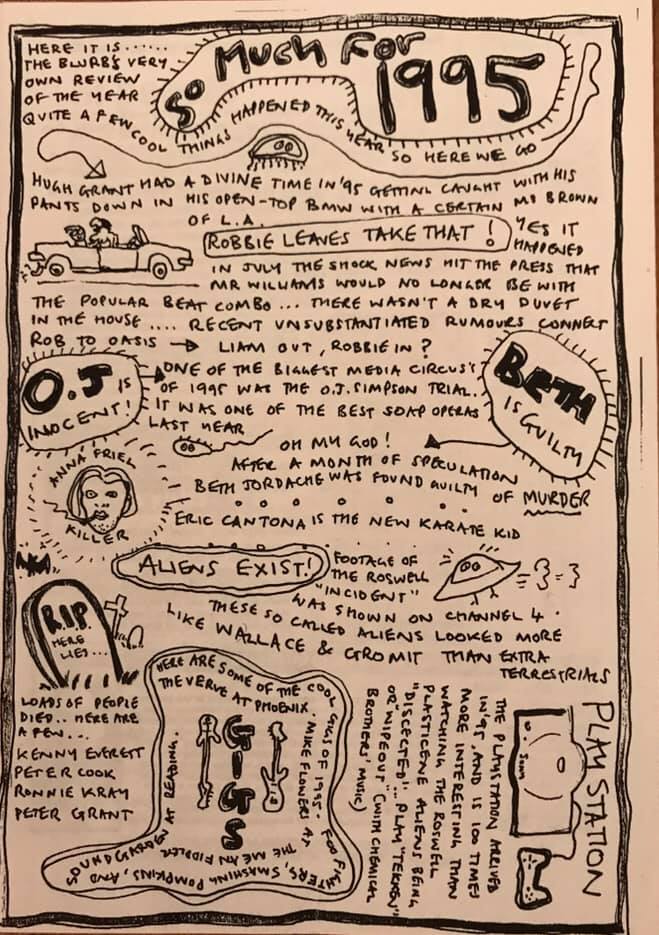 HERE IT IS......
THE BLURB'S VERY
OWN REVIEW
OF THE YEAR
QUITE A FEW COOL THINGS HAPPENED THIS YEAR SO HERE WE GO
SO MUCH FOR
1995
HUGH GRANT HAD A DIVINE TIME IN '95 GETTING CAUGHT WITH HIS
PANTS DOWN IN HIS OPEN-TOP BMW WITH A CERTAIN MS BROWN
OF L.A.
ROBBIE LEAVES TAKE THAT!
YES IT
HAPPENED
IN JULY THE SHOCK NEWS HIT THE PRESS THAT
MR WILLIAMS WOULD NO LONGER BE WITH
THE POPULAR BEAT COMBO... THERE WASN'T A DRY DUVET
IN THE HOUSE.... RECENT UNSUBSTANTIATED RUMOURS CONNECT
ROB TO OASIS → LIAM OUT, ROBBIE IN?
O.J IS
INOCENT!
ONE OF THE BIGGEST MEDIA CIRCUS'S
OF 1995 WAS THE O.J. SIMPSON TRIAL.
IT WAS ONE OF THE BEST SOAP OPERAS
LAST YEAR
BETH
IS GUILTY
OH MY GOD!
AFTER A MONTH OF SPECULATION
BETH JORDACHE WAS FOUND GUILTY OF MURDER
ANNA FRIEL
KILLER
ERIC CANTONA IS THE NEW KARATE KID
ALIENS EXIST!
FOOTAGE OF
THE ROSWELL
"INCIDENT"
WAS SHOWN ON CHANNEL 4.
THESE SO CALLED ALIENS LOOKED MORE
LIKE WALLACE & GROMIT THAN EXTRA
TERRESTRIALS
R.I.P.
HERE
LIES...
LOADS OF PEOPLE
DIED.. HERE ARE
A FEW...
KENNY EVERETT
PETER COOK
RONNIE KRAY
PETER GRANT
HERE ARE SOME OF THE COOL GIGS OF 1995. FOO FIGHTERS, SMASHING PUMPKINS, AND SOUNDGARDEN AT READING.
THE VERVE AT PHOENIX. MIKE FLOWERS AT THE MEAN FIDDLER
GIGS
PLAYSTATION
THE PLAYSTATION ARRIVED
IN '95, AND IS 100 TIMES
MORE INTERESTING THAN
WATCHING THE ROSWELL
PLASTICENE ALIENS BEING
"DISCECTED"... PLAY "TEKKEN"
OR "WIPEOUT" (WITH CHEMICAL
BROTHERS' MUSIC)